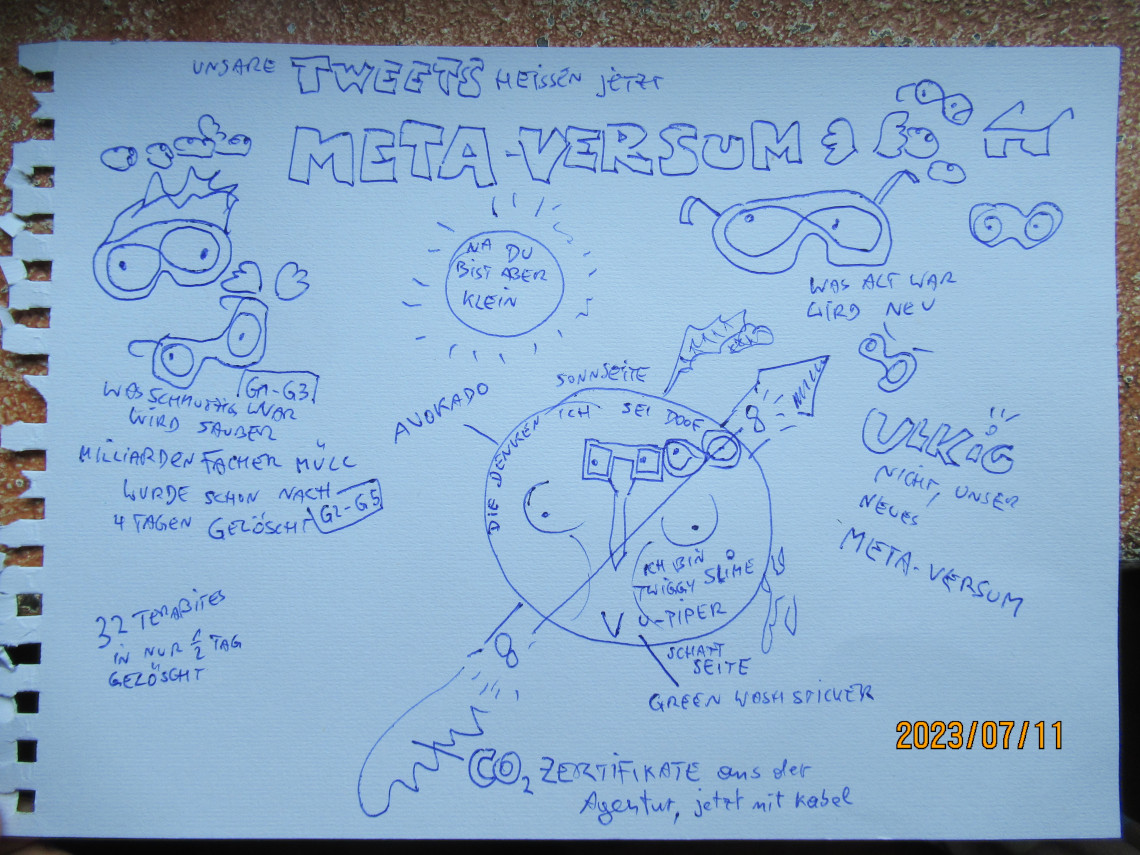 UNSARE TWEETS HEISSEN jETZT
META-VERSUM
NA DU
BIST ABER
KLEIN
WAS ALT WAR
WIRD NEU
G1-G3
WAS SCHMUTZIG WAR
WIRD SAUBER
MILLIARDENFACHER MÜLL
WURDE SCHON NACH
4 TAGEN GELÖSCHT
G2-G5
32 TERABITES
IN NUR 1/2 TAG
GELÖSCHT
AVOKADO
SONNSEITE
DIE DENKEN ICH SEI DOOF
8
ICH BIN
TWIGGY SLIME
V U-PIPER
8
SCHATT
SEITE
GREEN WASH STICKER
ULKiG
NICHT, UNSER
NEUES
META-VERSUM
CO2 ZERTIFIKATE aus der
Agentur, jetzt mit Kabel
2023/07/11